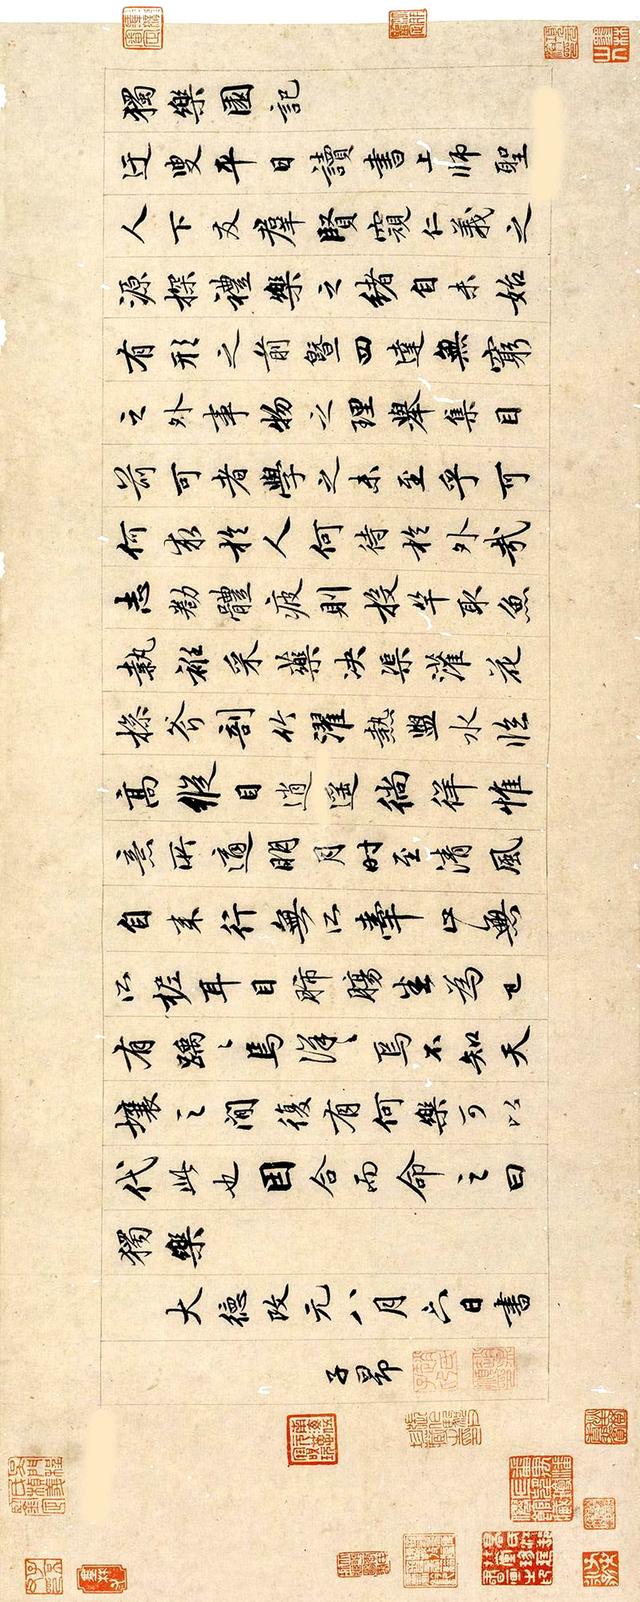 獨樂園記
迂叟平日讀書上師聖
人下友羣賢窺仁義之
源探禮樂之緒自未始
有形之前暨四達無窮
之外事物之理舉集目
前可者學之未至乎可
何求於人何待於外哉
志勌體疲則投竿取魚
執衽采藥决渠灌花
操斧剖竹濯熱盥水臨
高縱目逍遥徜徉惟
意所適明月时至清風
自来行無所牽止無
所柅耳目肺腸坐為己
有踽々焉洋々焉不知天
壤之間復有何樂可以
代此也因合而命之曰
獨樂
大德改元八月六日書
子昂